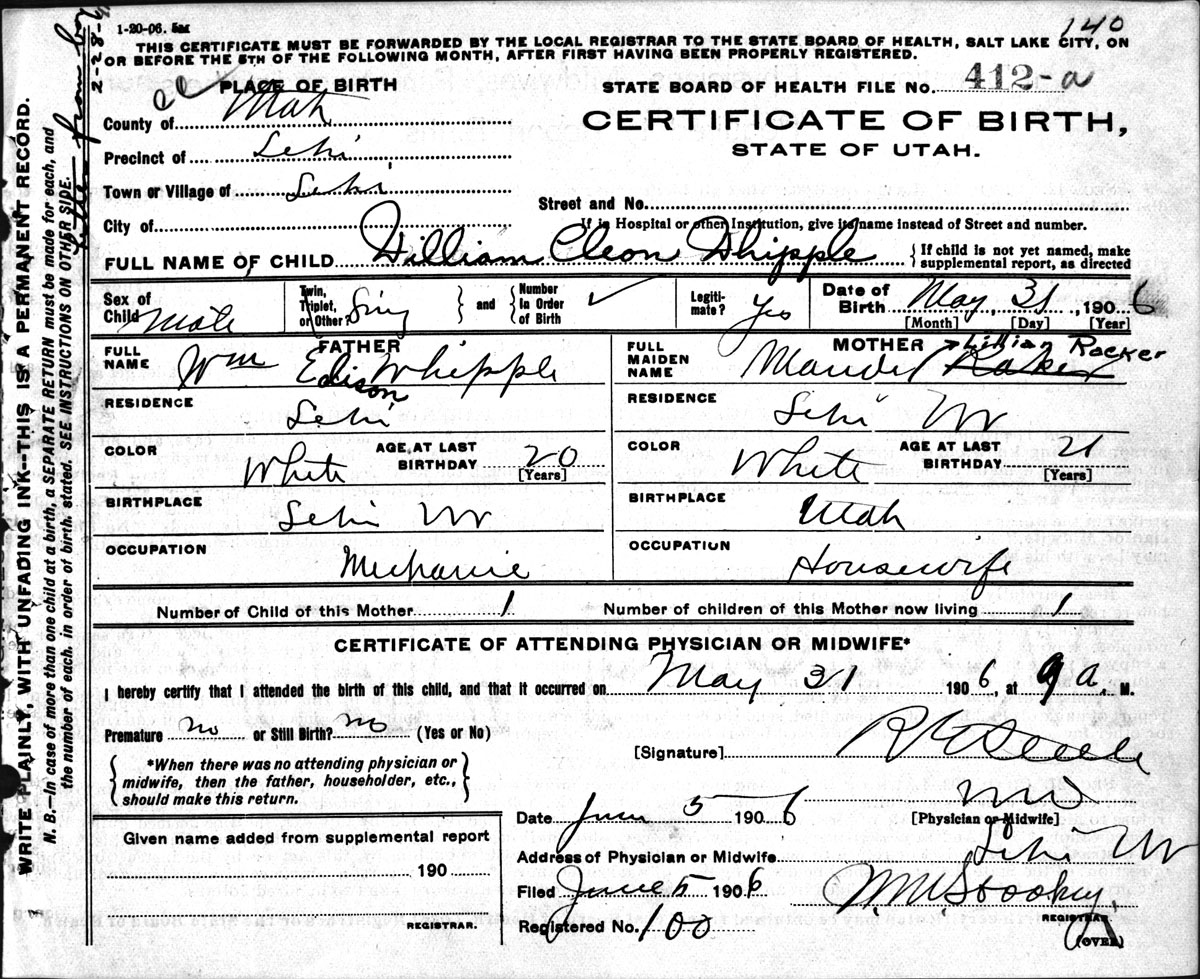 1-20-06.
140
THIS CERTIFICATE MUST BE FORWARDED BY THE LOCAL REGISTRAR TO THE STATE BOARD OF HEALTH, SALT LAKE CITY, ON
OR BEFORE THE 5TH OF THE FOLLOWING MONTH, AFTER FIRST HAVING BEEN PROPERLY REGISTERED.
PLACE OF BIRTH
STATE BOARD OF HEALTH FILE NO. 412-a
County of Utah
CERTIFICATE OF BIRTH,
STATE OF UTAH.
Precinct of Lehi
Town or Village of Lehi
Street and No.
City of
If in Hospital or other Institution, give its name instead of Street and number.
FULL NAME OF CHILD William Cleon Whipple
If child is not yet named, make
supplemental report, as directed
Sex of Child Male
Twin, Triplet, or Other? Sing and Number In Order of Birth ✓
Legitimate? Yes
Date of Birth May 31, 1906
[Month] [Day] [Year]
FATHER
FULL NAME Wm Edison Whipple
RESIDENCE Lehi
COLOR White AGE AT LAST BIRTHDAY 20 [Years]
BIRTHPLACE Lehi Ut
OCCUPATION Mechanic
MOTHER
FULL MAIDEN NAME Maude Lillian Racker
RESIDENCE Lehi Ut
COLOR White AGE AT LAST BIRTHDAY 21 [Years]
BIRTHPLACE Utah
OCCUPATION Housewife
Number of Child of this Mother 1 Number of children of this Mother now living 1
CERTIFICATE OF ATTENDING PHYSICIAN OR MIDWIFE*
I hereby certify that I attended the birth of this child, and that it occurred on May 31 1906, at 9 a. M.
Premature no or Still Birth? no (Yes or No)
[Signature]
*When there was no attending physician or
midwife, then the father, householder, etc.,
should make this return.
MD
Date June 5 1906 [Physician or Midwife]
Given name added from supplemental report
190
REGISTRAR.
Address of Physician or Midwife Lehi Ut
Filed June 5 1906
REGISTRAR
Registered No. 100
(OVER)
WRITE PLAINLY, WITH UNFADING INK--THIS IS A PERMANENT RECORD.
N. B.—In case of more than one child at a birth, a SEPARATE RETURN must be made for each, and
the number of each, in order of birth, stated. SEE INSTRUCTIONS ON OTHER SIDE.